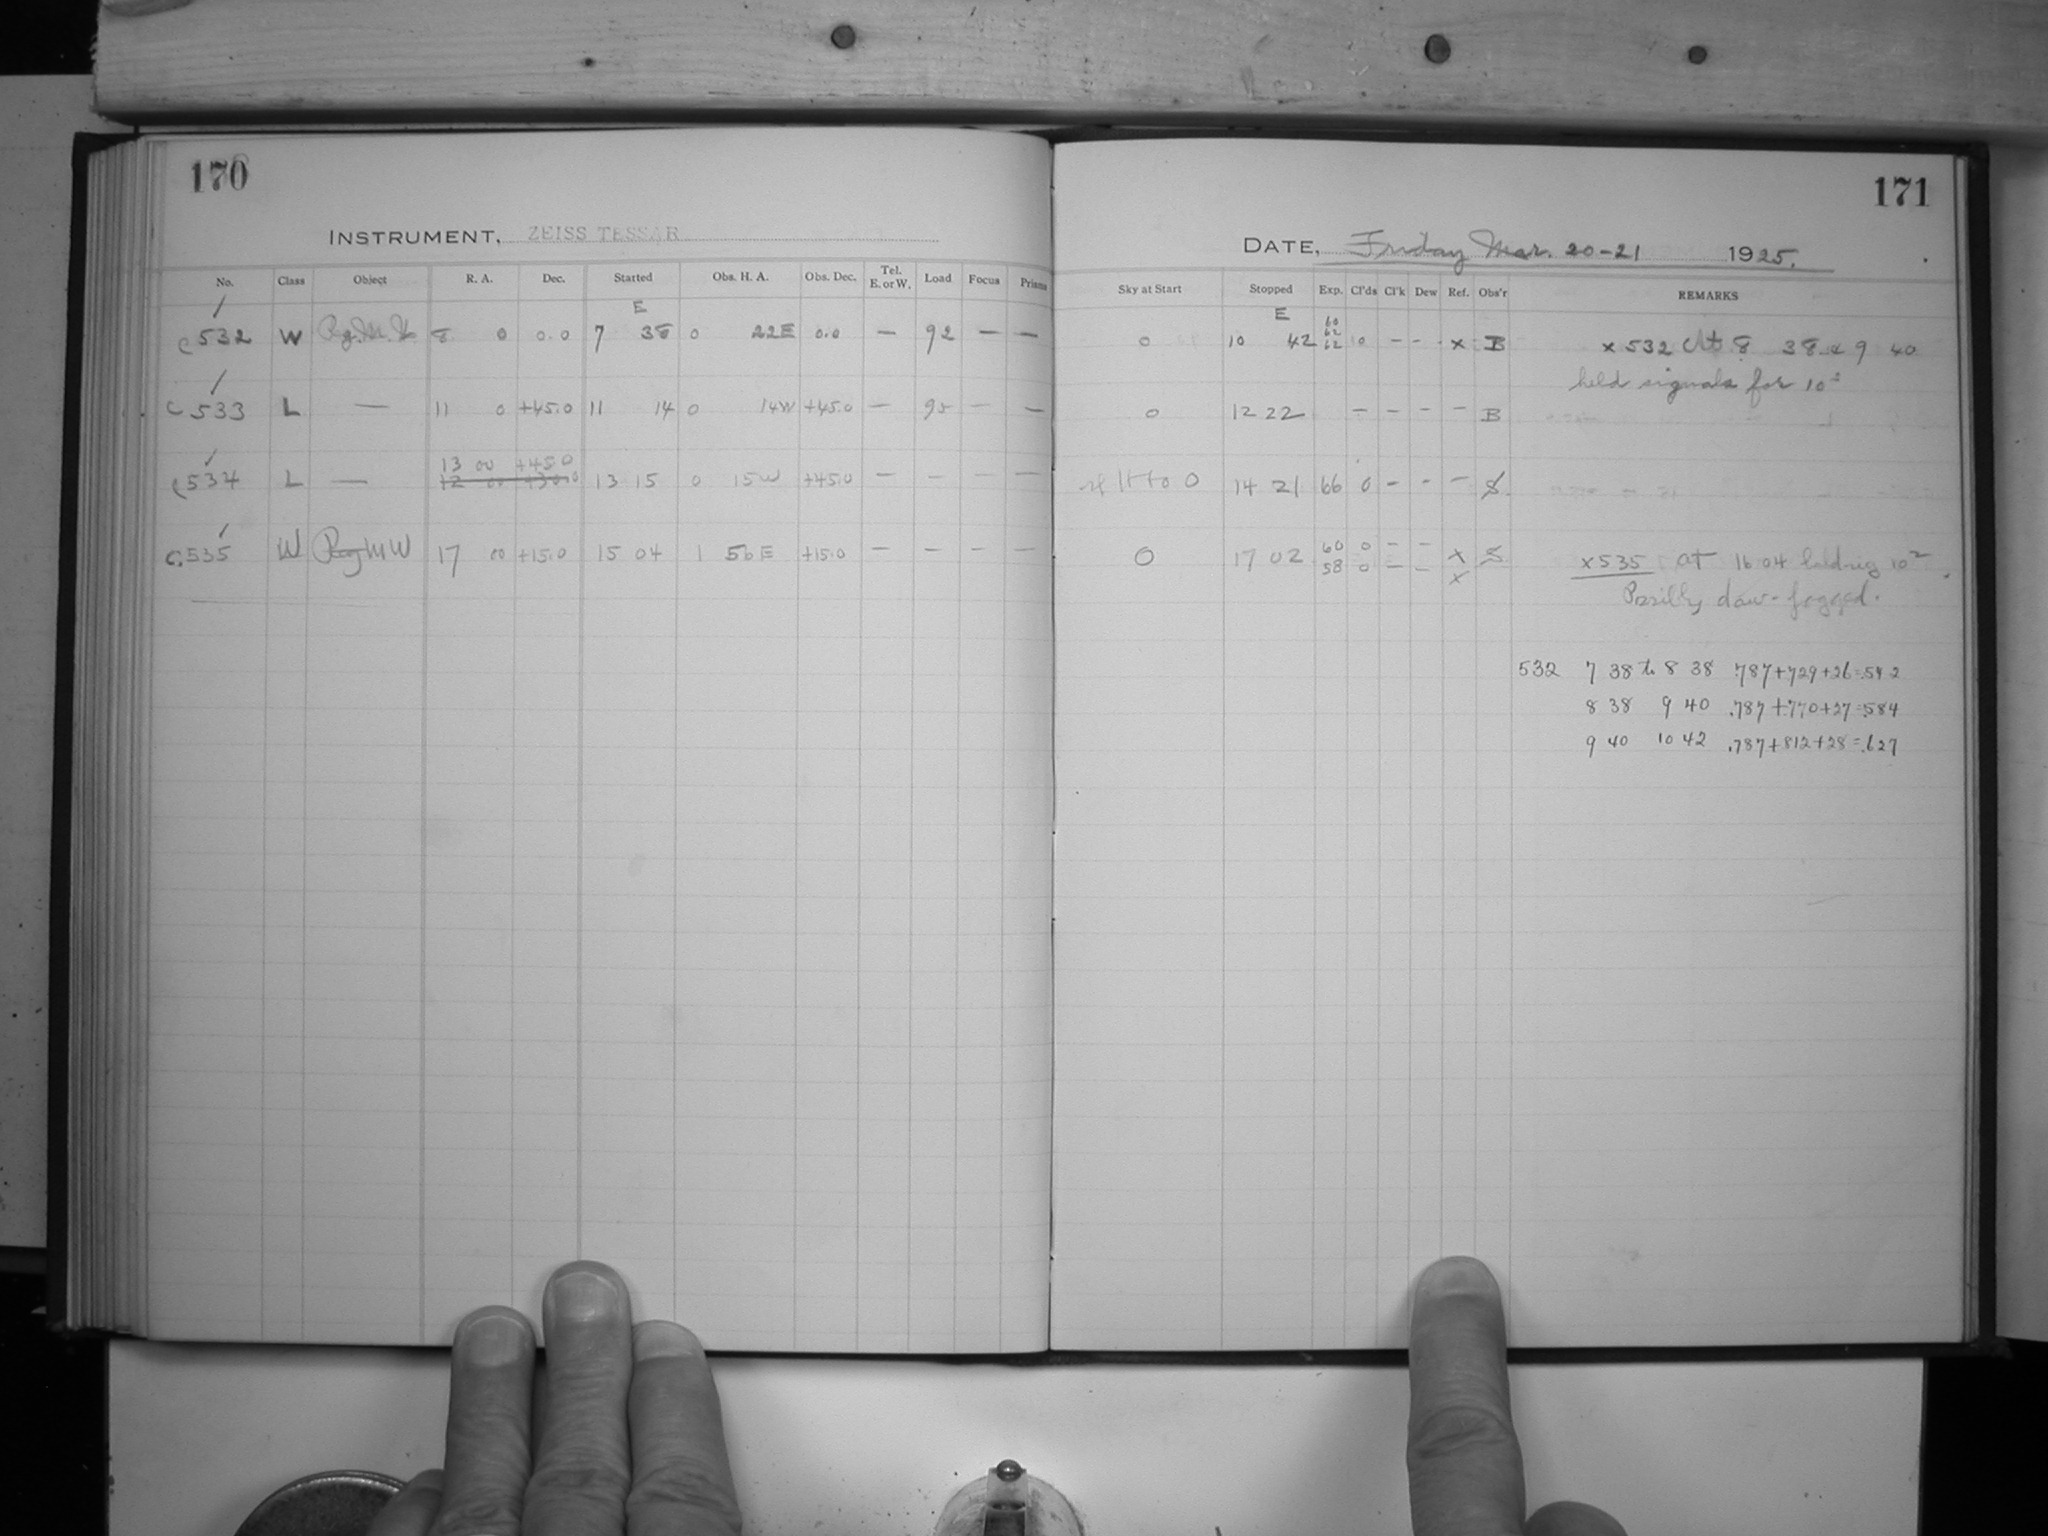 170
INSTRUMENT, ZEISS TESSAR
No. Class Object R. A. Dec. Started Obs. H. A. Obs. Dec. Tel. E. or W. Load Focus Prisms
E
C 532 W 8 0 0.0 7 38 0 22E 0.0 — 92 — —
C 533 L — 11 0 +45.0 11 14 0 14W +45.0 — 95 — —
13 00 +45.0
C 534 L — 12 00 +30.0 13 15 0 15W +45.0 — — —
C. 535 W Reg MW 17 00 +15.0 15 04 1 56 E +15.0 — — — —
171
DATE, Friday Mar. 20-21 1925.
Sky at Start Stopped Exp. Cl'ds Cl'k Dew Ref. Obs'r REMARKS
E
0 10 42 60 62 62 0 - - x B x 532 At 8 38 & 9 40
held signals for 10
0 12 22 — — — — B
to 0 14 21 66 0 - - — S
0 17 02 60 0 - - x S x 535 at 16 04 holding 10
58 0 - - x
Possibly daw-fogged.
532 7 38 to 8 38 .787+729+26=.542
8 38 9 40 .787+.770+27=.584
9 40 10 42 .787+812+28=.627